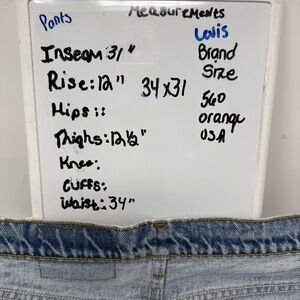 Pants
Measurements
Inseam 31"
Rise: 12"
Hips ::
Thighs: 12½"
Knee:
Cuffs:
Waist: 34"
34x31
Levis
Brand
Size
560
orange
USA